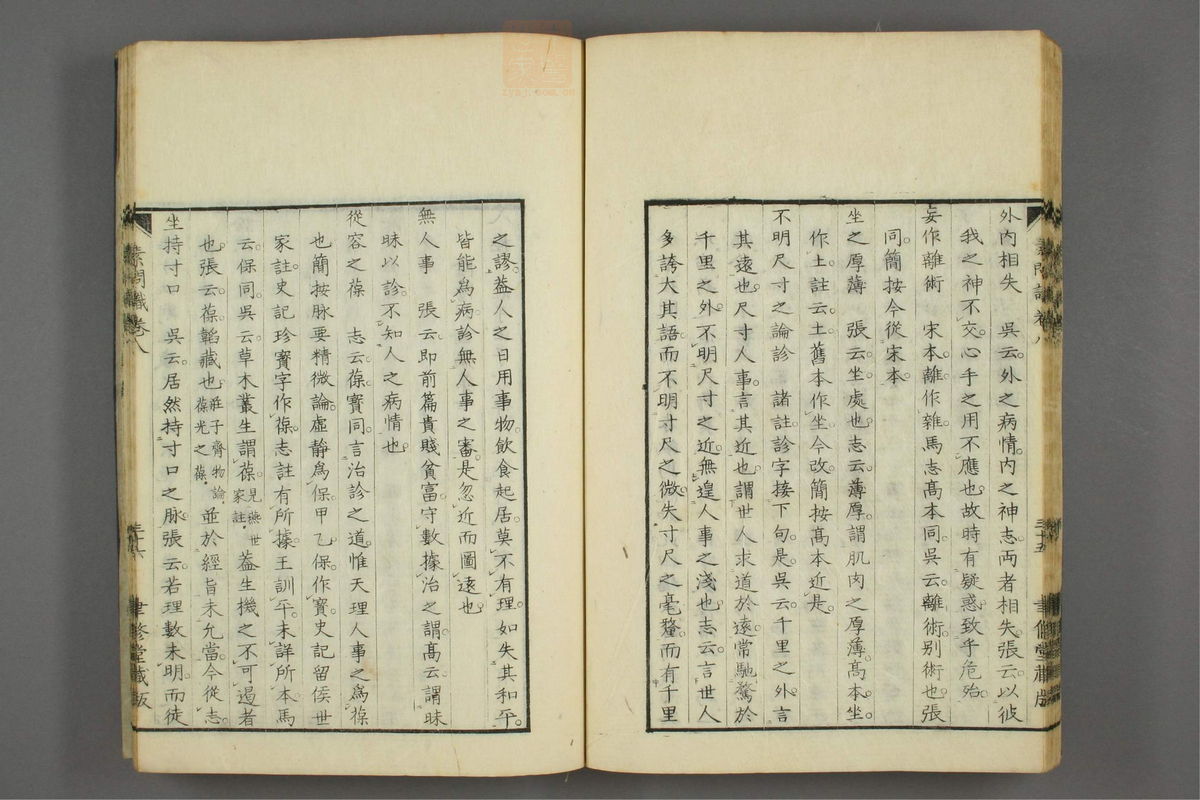 外内相失　吳云外之病情内之神志両者相失張云以彼
我之神不交心手之用不應也故時有疑惑致乎危殆
妄作離術　宋本離作雜馬志髙本同吳云離術别術也張
同簡按今從宋本
坐之厚薄　張云坐處也志云薄厚謂肌肉之厚薄髙本坐
作土註云土舊本作坐今改簡按髙本近是
不明尺寸之論診　諸註診字接下句是吳云千里之外言
其遠也尺寸人事言其近也謂世人求道於遠常馳騖於
千里之外不明尺寸之近無遑人事之淺也志云言世人
多誇大其語而不明寸尺之微失寸尺之毫釐而有千里
素問識卷八
三十五
聿修堂藏版
之謬葢人之日用事物飲食起居莫不有理如失其和平
皆能爲病診無人事之審是忽近而圖遠也
無人事　張云即前篇貴賤貧富守數據治之謂髙云謂昧
昧以診不知人之病情也
從容之葆　志云葆寶同言治診之道惟天理人事之爲葆
也簡按脉要精微論虛靜爲保甲乙保作寳史記留侯世
家註史記珍寶字作葆志註有所據王訓平未詳所本馬
云保同吳云草木叢生謂葆見燕世家註葢生機之不可遏者
也張云葆韜藏也莊子齊物論葆光之葆並於經旨未允當今從志
坐持寸口　吳云居然持寸口之脉張云若理數未明而徒
素問識卷八
三十六
聿修堂藏版